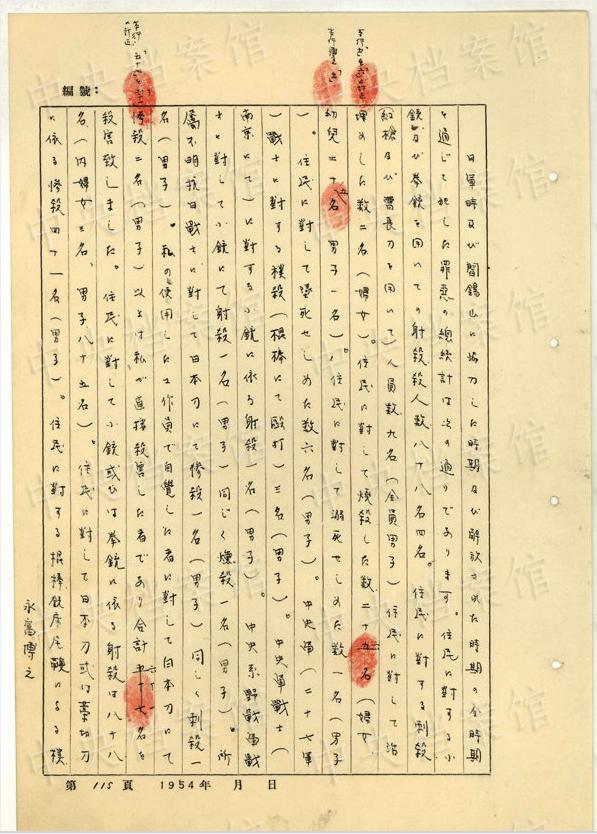 編號：
日軍時及び閻錫山に協力した時期及び解放された時期の全時期
を通じて犯した罪悪の總統計は次の通りであります。住民に對する小
銃及び拳銃を用いての射殺殺人数八十八名四名。住民に對する刺殺
人員数九名（全員男子）住民に對して
埋めした数二名（婦女）。住民に對して燒殺した数二十五名（婦女、
幼兒四十名 男子一名）。住民に對して溺死せしめた数一名（男子
）。住民に對して墜死せしめた数六名（男子）。中央軍（二十七軍
）戰士に對する撲殺（棍棒にて毆打）三名（男子）。中央軍戰士（
南京にて）に對する小銃に依る射殺一名（男子）。中央系野戰軍戰
士に對して小銃にて射殺一名（男子）同じく燻殺一名（男子）。所
屬不明抗日戰士に對して日本刀にて慘殺一名（男子）同じく刺殺一
名（男子）。私の使用した工作員で自覺した者に對して日本刀にて
慘殺二名（男子）以上は私が直接殺害した者であり合計五十七名を
殺害致しました。住民に對して小銃或ひは拳銃に依る射殺は八十八
名（内婦女三名、男子八十五名）。住民に對して日本刀或は
に依る慘殺四十一名（男子）。住民に對する棍棒
永富博之
第 115 頁 1954年 月 日
中央档案馆